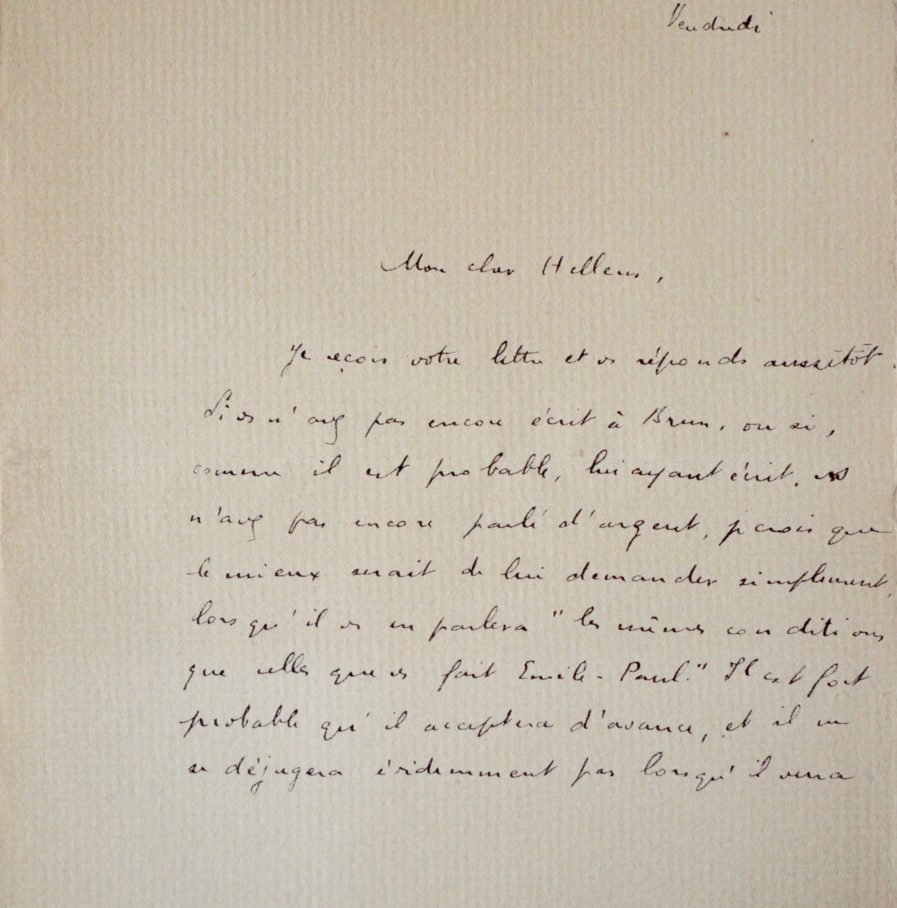 Vendredi
Mon cher Hellens,
Je reçois votre lettre et vs réponds aussitôt.
Si vs n'avez pas encore écrit à Brun, ou si,
comme il est probable, lui ayant écrit, vs
n'avez pas encore parlé d'argent, je crois que
le mieux serait de lui demander simplement,
lorsqu'il vs en parlera "les mêmes conditions
que celles que vs fait Emile-Paul." Il est fort
probable qu'il acceptera d'avance, et il ne
se déjugera évidemment pas lorsqu'il verra